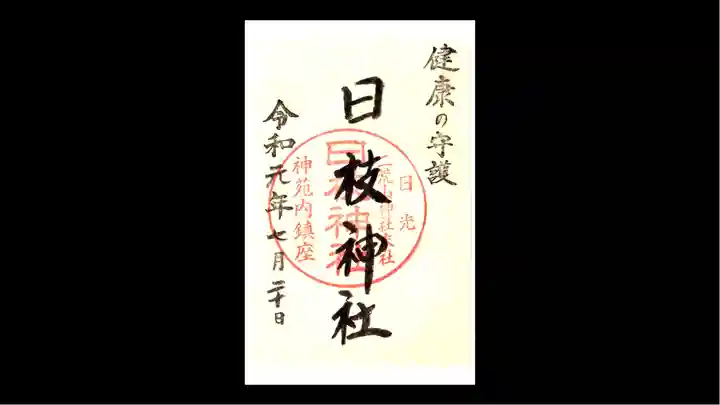 健康の守護
日枝神社
日光
二荒山神社末社
日枝神社
神苑内鎮座
令和元年七月二十日